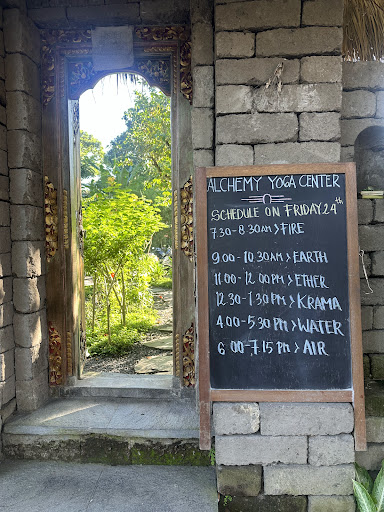 ALCHEMY YOGA CENTER
SCHEDULE ON FRIDAY 24TH
7.30 - 8.30AM > FIRE
9.00 - 10.30AM > EARTH
11.00 - 12.00 PM > ETHER
12.30 - 1.30 PM > KRAMA
4.00 - 5.30 PM > WATER
6.00 - 7.15 PM > AIR